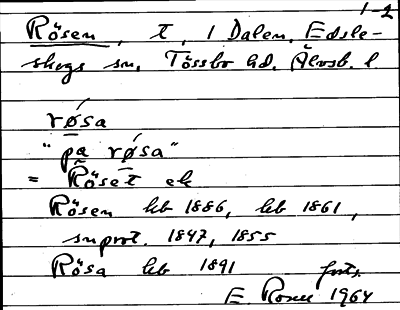 1-2
Rösen, t, i Dalen, Edsle-
skogs sn, Tössbo hd. Älvsb. l
røsa
"pa røsa"
= Röset ek
Rösen kb 1886, kb 1861,
snprot. 1847, 1855
Rösa kb 1891 forts.
E. 1964